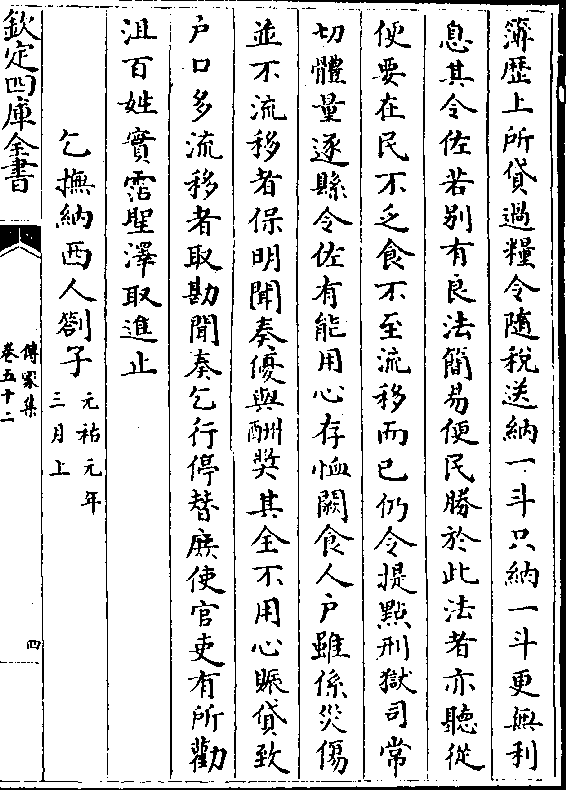 簿歴上所貸過糧令隨稅送納一斗只納一斗更無利
息其令佐若别有良法簡易便民勝於此法者亦聽從
便要在民不乏食不至流移而已仍令提㸃刑獄司常
切體量逐縣令佐有能用心存恤闕食人户雖係災傷
並不流移者保明聞奏優與酬奬其全不用心賑貸致
户口多流移者取勘聞奏乞行停替庶使官吏有所勸
沮百姓實霑聖澤取進止
乞撫納西人劄子元祐元年三月上
欽定四庫全書
傳家集
卷五十二
四